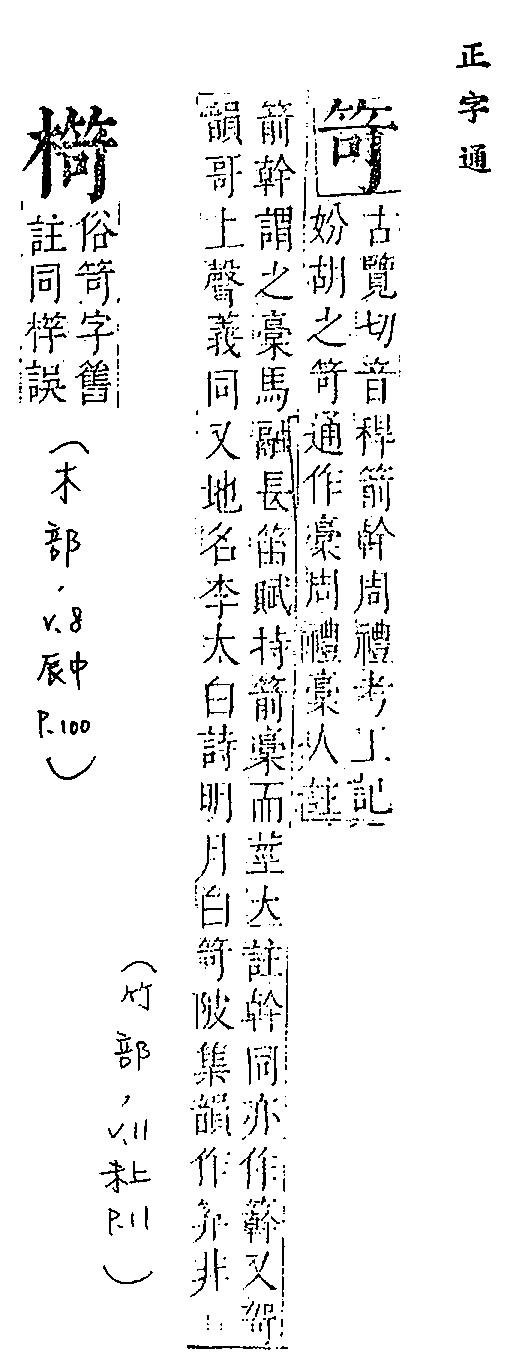 正字通
笴
古覽切音稈箭幹周禮考工記
妢胡之笴通作槀周禮槀人註
箭幹謂之槀馬融長笛賦持箭槀而莖大註幹同亦作簳又哿
韻哥上聲義同又地名李太白詩明月白笴陂集韻作非
(竹部,v.11未上P.11)
俗笴字舊
註同榟誤
(木部,v.8辰中P.100)